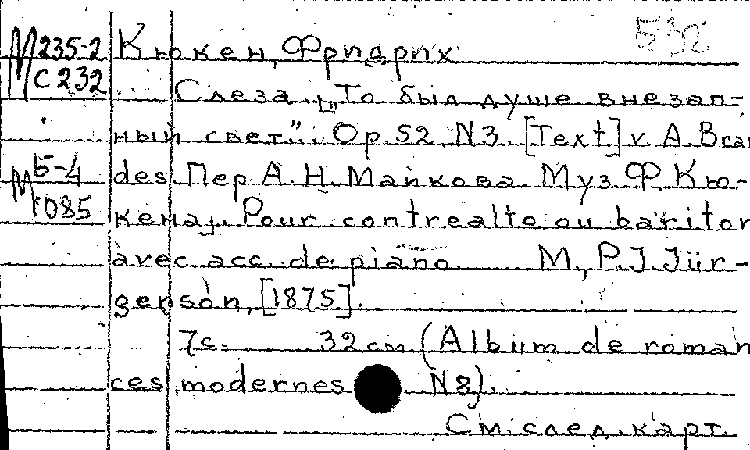 532
М 235-2
С 232
Кюкен, Фридрих
Слеза. [„То был душе внезап-
ный свет". Op. 52, N3. [Text] v. A. Bran
des Пер А. Н. Майкова. Муз Ф Кю-
М 5-4
1085
кена]. Pour contrealto ou bariton
avec acc. de piano М., P. J. Jür-
genson, [1875].
7с. 32см (Album de roman
ces modernes N 8).
См. след. карт.